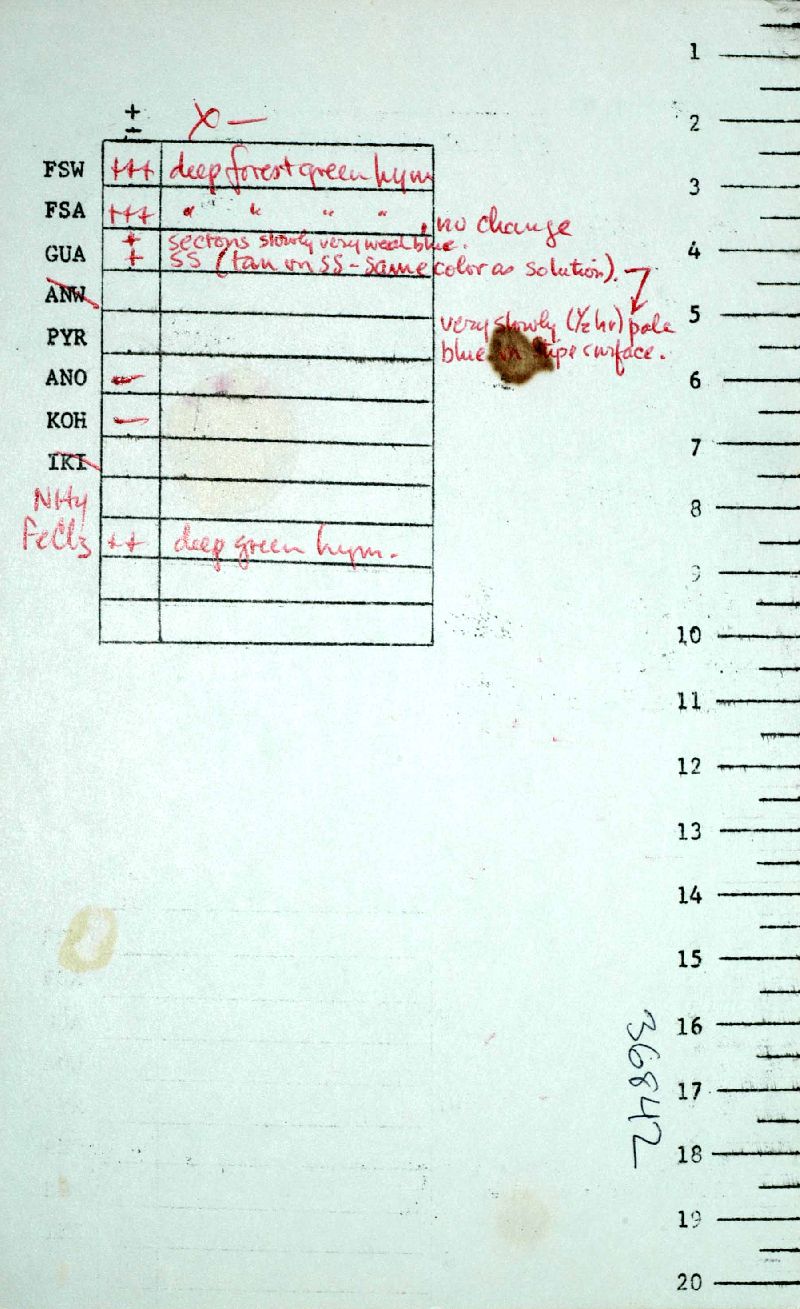 +
- X —
FSW +++ deep forest green hym
FSA +++ " " " " , no change
GUA + sections slowly very weak blue.
+ SS (tan on SS - same color as solution).
very slowly (½ hr) pale
blue on stipe surface.
ANW
PYR
ANO -
KOH -
IKI
NH4
FeCl3 ++ deep green hym.
1
2
3
4
5
6
7
8
9
10
11
12
13
14
15
16
17
18
19
20
36842